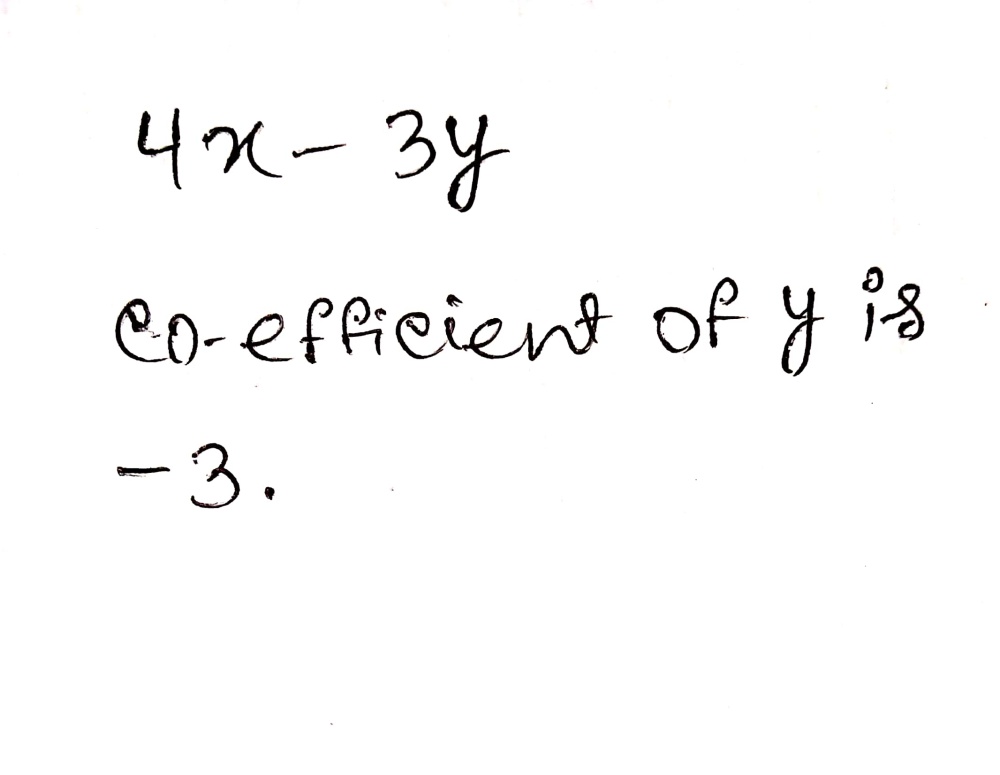 4x - 3y
Co-efficient of y is
-3.